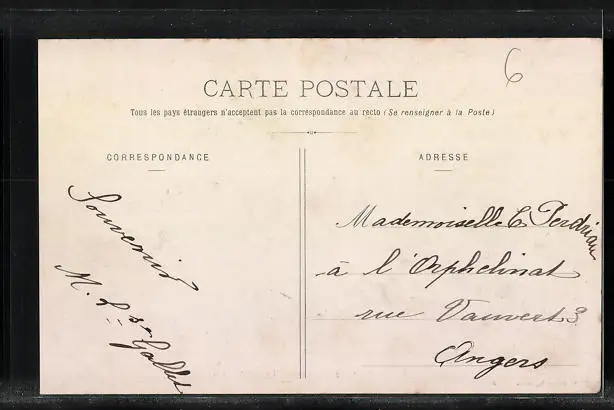 6
CARTE POSTALE
Tous les pays étrangers n'acceptent pas la correspondance au recto (Se renseigner à la Poste)
CORRESPONDANCE
ADRESSE
Souvenir
M. L. Gallet
Mademoiselle E Perdriau
à l'Orphelinat
rue Vauvert 3
Angers